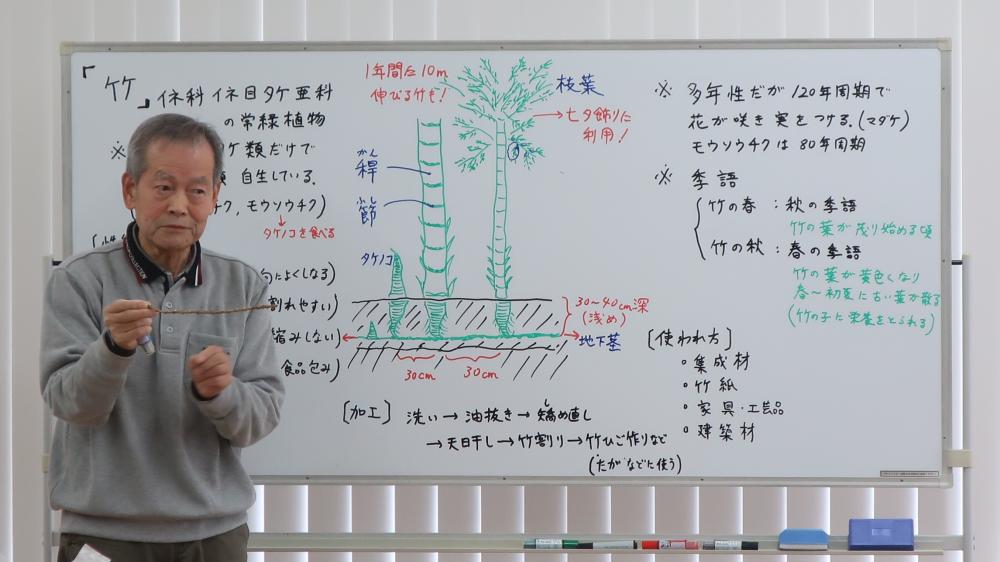 「竹」イネ科 イネ目 タケ亜科
の常緑植物
※
ケ類だけで
自生している。
ク, モウソウチク)
タケノコを食べる
によくしなる)
割れやすい)
縮みしない)
食品包み)
1年間に10m
伸びる竹も!
かん
稈
ふし
節
タケノコ
枝葉
七夕飾りに
利用!
30〜40cm深
(浅め)
地下茎
30cm
30cm
〔加工〕 洗い→油抜き→矯め直し
→天日干し→竹割り→竹ひご作りなど
(たがなどに使う)
※ 多年性だが120年周期で
花が咲き実をつける。(マダケ)
モウソウチクは80年周期
※ 季語
竹の春:秋の季語
竹の葉が茂り始める頃
竹の秋:春の季語
竹の葉が黄色くなり
春〜初夏に古い葉が散る
(竹の子に栄養をとられる)
〔使われ方〕
・集成材
・竹紙
・家具・工芸品
・建築材